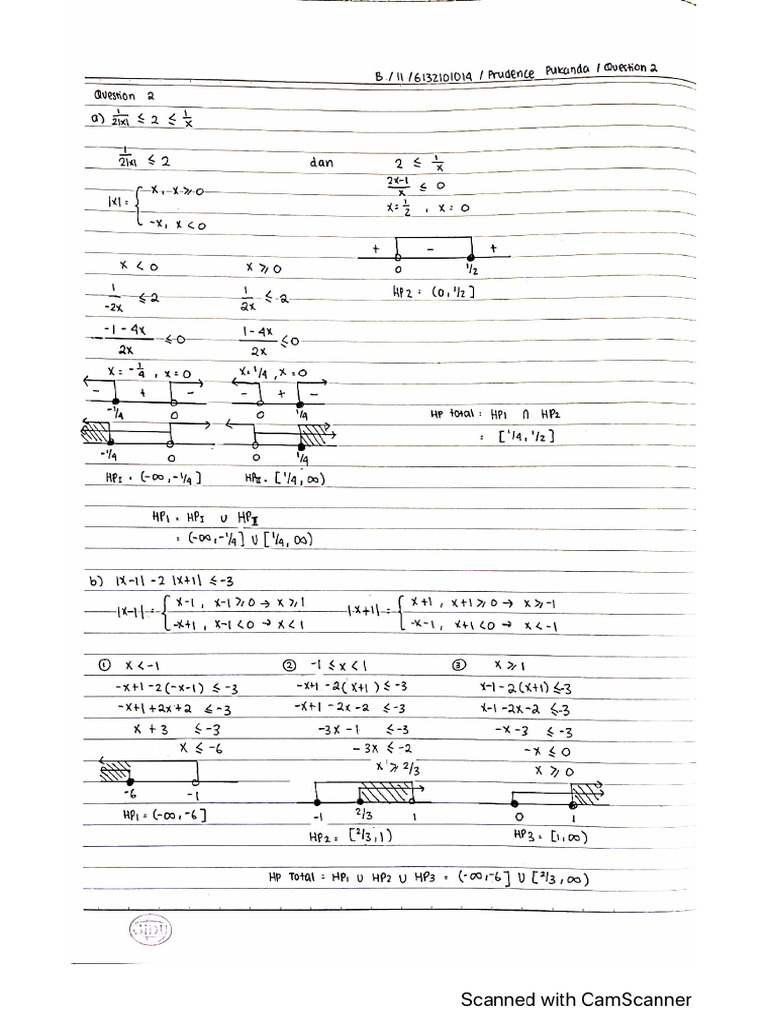 B / 11 / 6132101014 / Prudence Pukanda / Question 2
Question 2
a) 1/2|x| ≤ 2 ≤ 1/x
1/2|x| ≤ 2 dan 2 ≤ 1/x
(2x-1)/x ≤ 0
|x| = { x, x ≥ 0
-x, x < 0
x = 1/2, x = 0
+ - +
0 1/2
HP2 = (0, 1/2]
x < 0 x ≥ 0
1/-2x ≤ 2 1/2x ≤ 2
(-1-4x)/2x ≤ 0 (1-4x)/2x ≤ 0
x = -1/4, x = 0 x = 1/4, x = 0
- + - - + -
-1/4 0 0 1/4
-1/4 0 0 1/4
HPI = (-∞, -1/4] HPII = [1/4, ∞)
HP total = HP1 ∩ HP2
= [1/4, 1/2]
HP1 = HPI ∪ HPII
= (-∞, -1/4] ∪ [1/4, ∞)
b) |x-1| - 2 |x+1| ≤ -3
|x-1| = { x-1, x-1 ≥ 0 → x ≥ 1 |x+1| = { x+1, x+1 ≥ 0 → x ≥ -1
-x+1, x-1 < 0 → x < 1 -x-1, x+1 < 0 → x < -1
① x < -1
-x+1-2(-x-1) ≤ -3
-x+1+2x+2 ≤ -3
x + 3 ≤ -3
x ≤ -6
-6 -1
HP1 = (-∞, -6]
② -1 ≤ x < 1
-x+1-2(x+1) ≤ -3
-x+1-2x-2 ≤ -3
-3x-1 ≤ -3
-3x ≤ -2
x ≥ 2/3
-1 2/3 1
HP2 = [2/3, 1)
③ x ≥ 1
x-1-2(x+1) ≤ -3
x-1-2x-2 ≤ -3
-x-3 ≤ -3
-x ≤ 0
x ≥ 0
0 1
HP3 = [1, ∞)
HP Total = HP1 ∪ HP2 ∪ HP3 = (-∞, -6] ∪ [2/3, ∞)
SIDU
Scanned with CamScanner